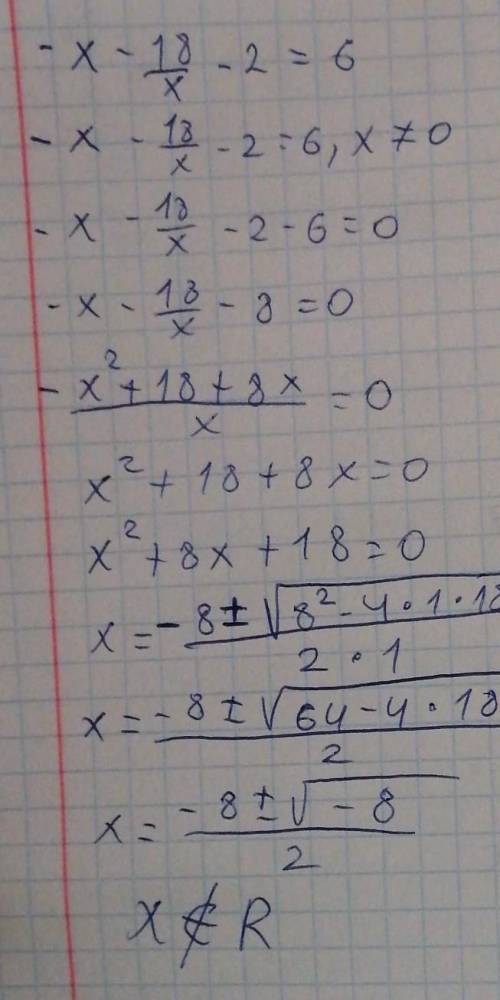 - x - 18/x - 2 = 6
- x - 18/x - 2 = 6, x ≠ 0
- x - 18/x - 2 - 6 = 0
- x - 18/x - 8 = 0
- (x² + 18 + 8x)/x = 0
x² + 18 + 8x = 0
x² + 8x + 18 = 0
x = (-8 ± √(8² - 4 · 1 · 18))/(2 · 1)
x = (-8 ± √(64 - 4 · 18))/2
x = (-8 ± √(-8))/2
x ∉ R